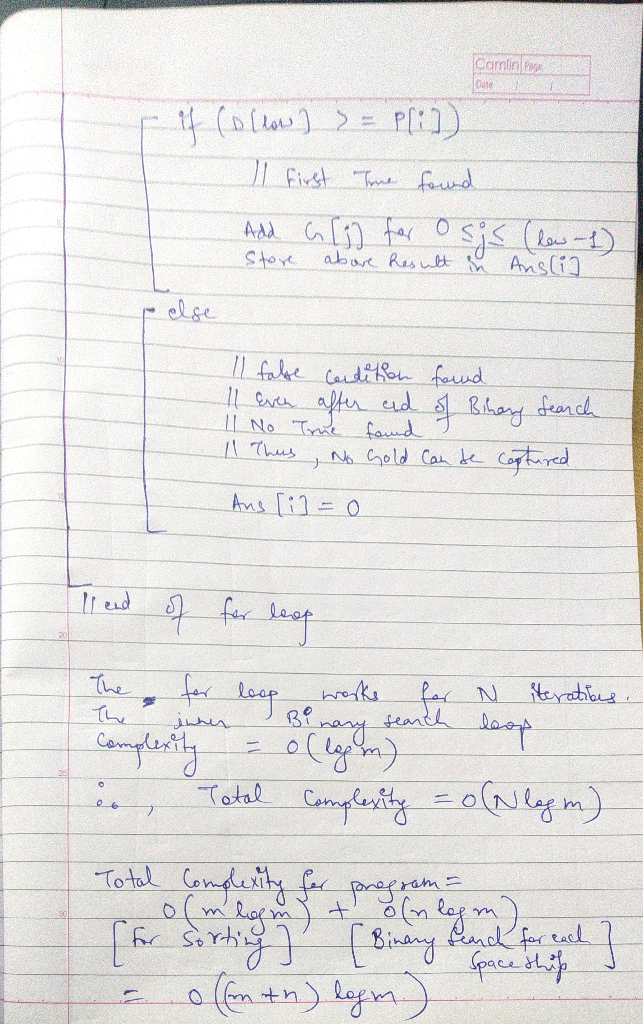 Camlin Page
Date / /
if (D[low] >= P[i])
// First True found
Add G[j] for 0 ≤ j ≤ (low-1)
Store above Result in Ans[i]
else
10
// false condition found
// Even after end of Binary Search
// No True found
// Thus, No Gold Can be Captured
15
Ans[i] = 0
// end of for loop
20
The for loop works for N iterations.
The inner Binary search loop
Complexity = O(log m)
25
∴, Total Complexity = O(N log m)
Total Complexity for program =
30
O(m log m) + O(n log m)
[For Sorting] [Binary Search for each
Space ship]
= O((m+n) log m)